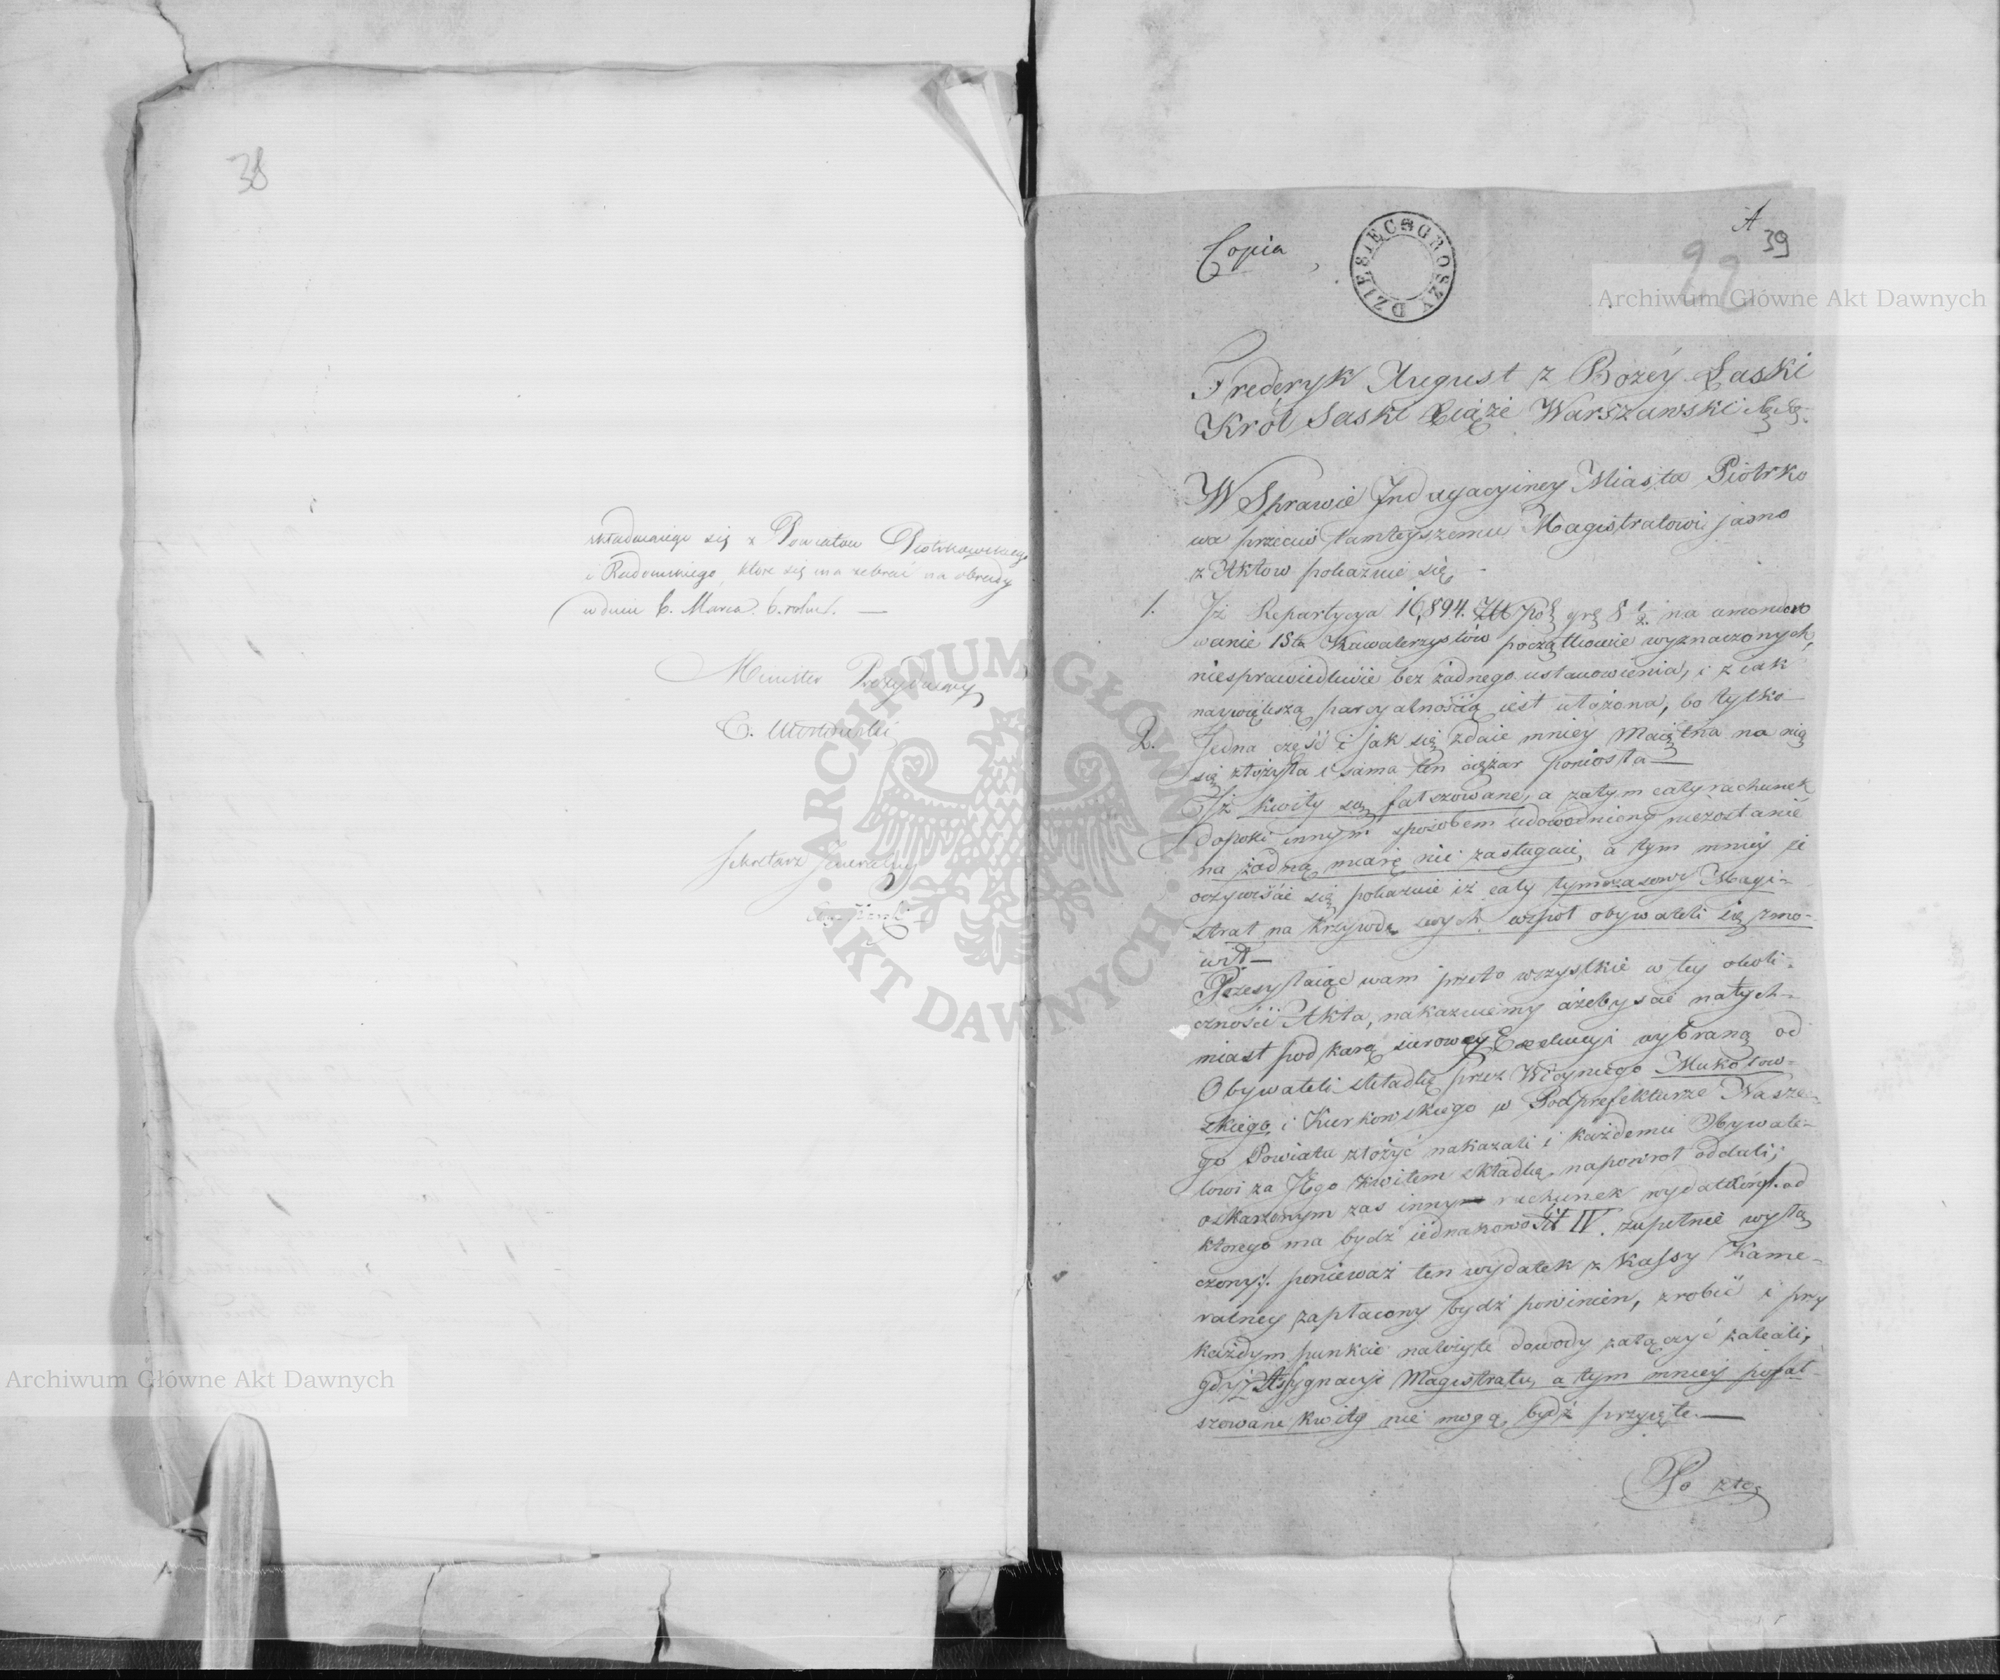 38
składaiącego się z Powiatow Piotrkowskiego
i Radomskiego, ktore się ma zebrać na obrady
w dniu 6. Marca b. roku. —
Minister Prezyduiący
Sekretarz Generalny
A
39
22
Copia
DZIESIĘC GROSZY
Fryderyk August z Bożéy Łaski
Król Saski Xiąże Warszawski &c &c.
W Sprawie Indagacyiney Miasta Piotrko
wa przeciw tamteyszemu Magistratowi jasno
z Aktow pokazuie się
1. Iż Repartycya 16,894. Zł pol gr 8 ½ na amondero
wanie 15tu Kawalerzystów początkowie wyznaczonych,
niesprawiedliwie bez żadnego ustanowienia, i z iak
naywiększą parcyalnością iest ułożona, bo tylko
Jedna część i jak się zdaie mniey Maiętna na nią
się złożyła i sama ten ciężar poniosła —
2. Iż kwity są fałszowane, a zatym cały rachunek
dopoki innym sposobem udowodniony niezostanie
na żadną miarę nie zasługuie, a tym mniey że
oczywiście się pokazuie iż cały tymczasowy Magi-
strat na krzywdę swych wspoł obywateli się zmo-
wił —
Przesyłaiąc wam przeto wszystkie w tey okoli-
czności Akta, nakazuiemy ażebyście natych-
miast pod karą surowey Exekucyi wybraną od
Obywateli składkę przez Woynego Mukołow-
skiego i Kurkowskiego w Podprefekturze Nasze-
go Powiatu złożyć nakazali i każdemu Obywate-
lowi za Jego kwitem składkę napowrot oddali;
oskarżonym zas innym rachunek wydatków /: od
ktorego ma bydź iednakowo Tit IV. zupełnie wyłą
czony :/. ponieważ ten wydatek z Kassy Kame-
ralney zapłacony bydź powinien, zrobić i przy
każdym punkcie należyte dowody załączyć zalecili,
gdyż Assygnacye Magistratu, a tym mniey pofał-
szowane kwity nie mogą bydź przyięte. —
Po zło
Archiwum Główne Akt Dawnych
Archiwum Główne Akt Dawnych
ARCHIWUM GŁÓWNE AKT DAWNYCH